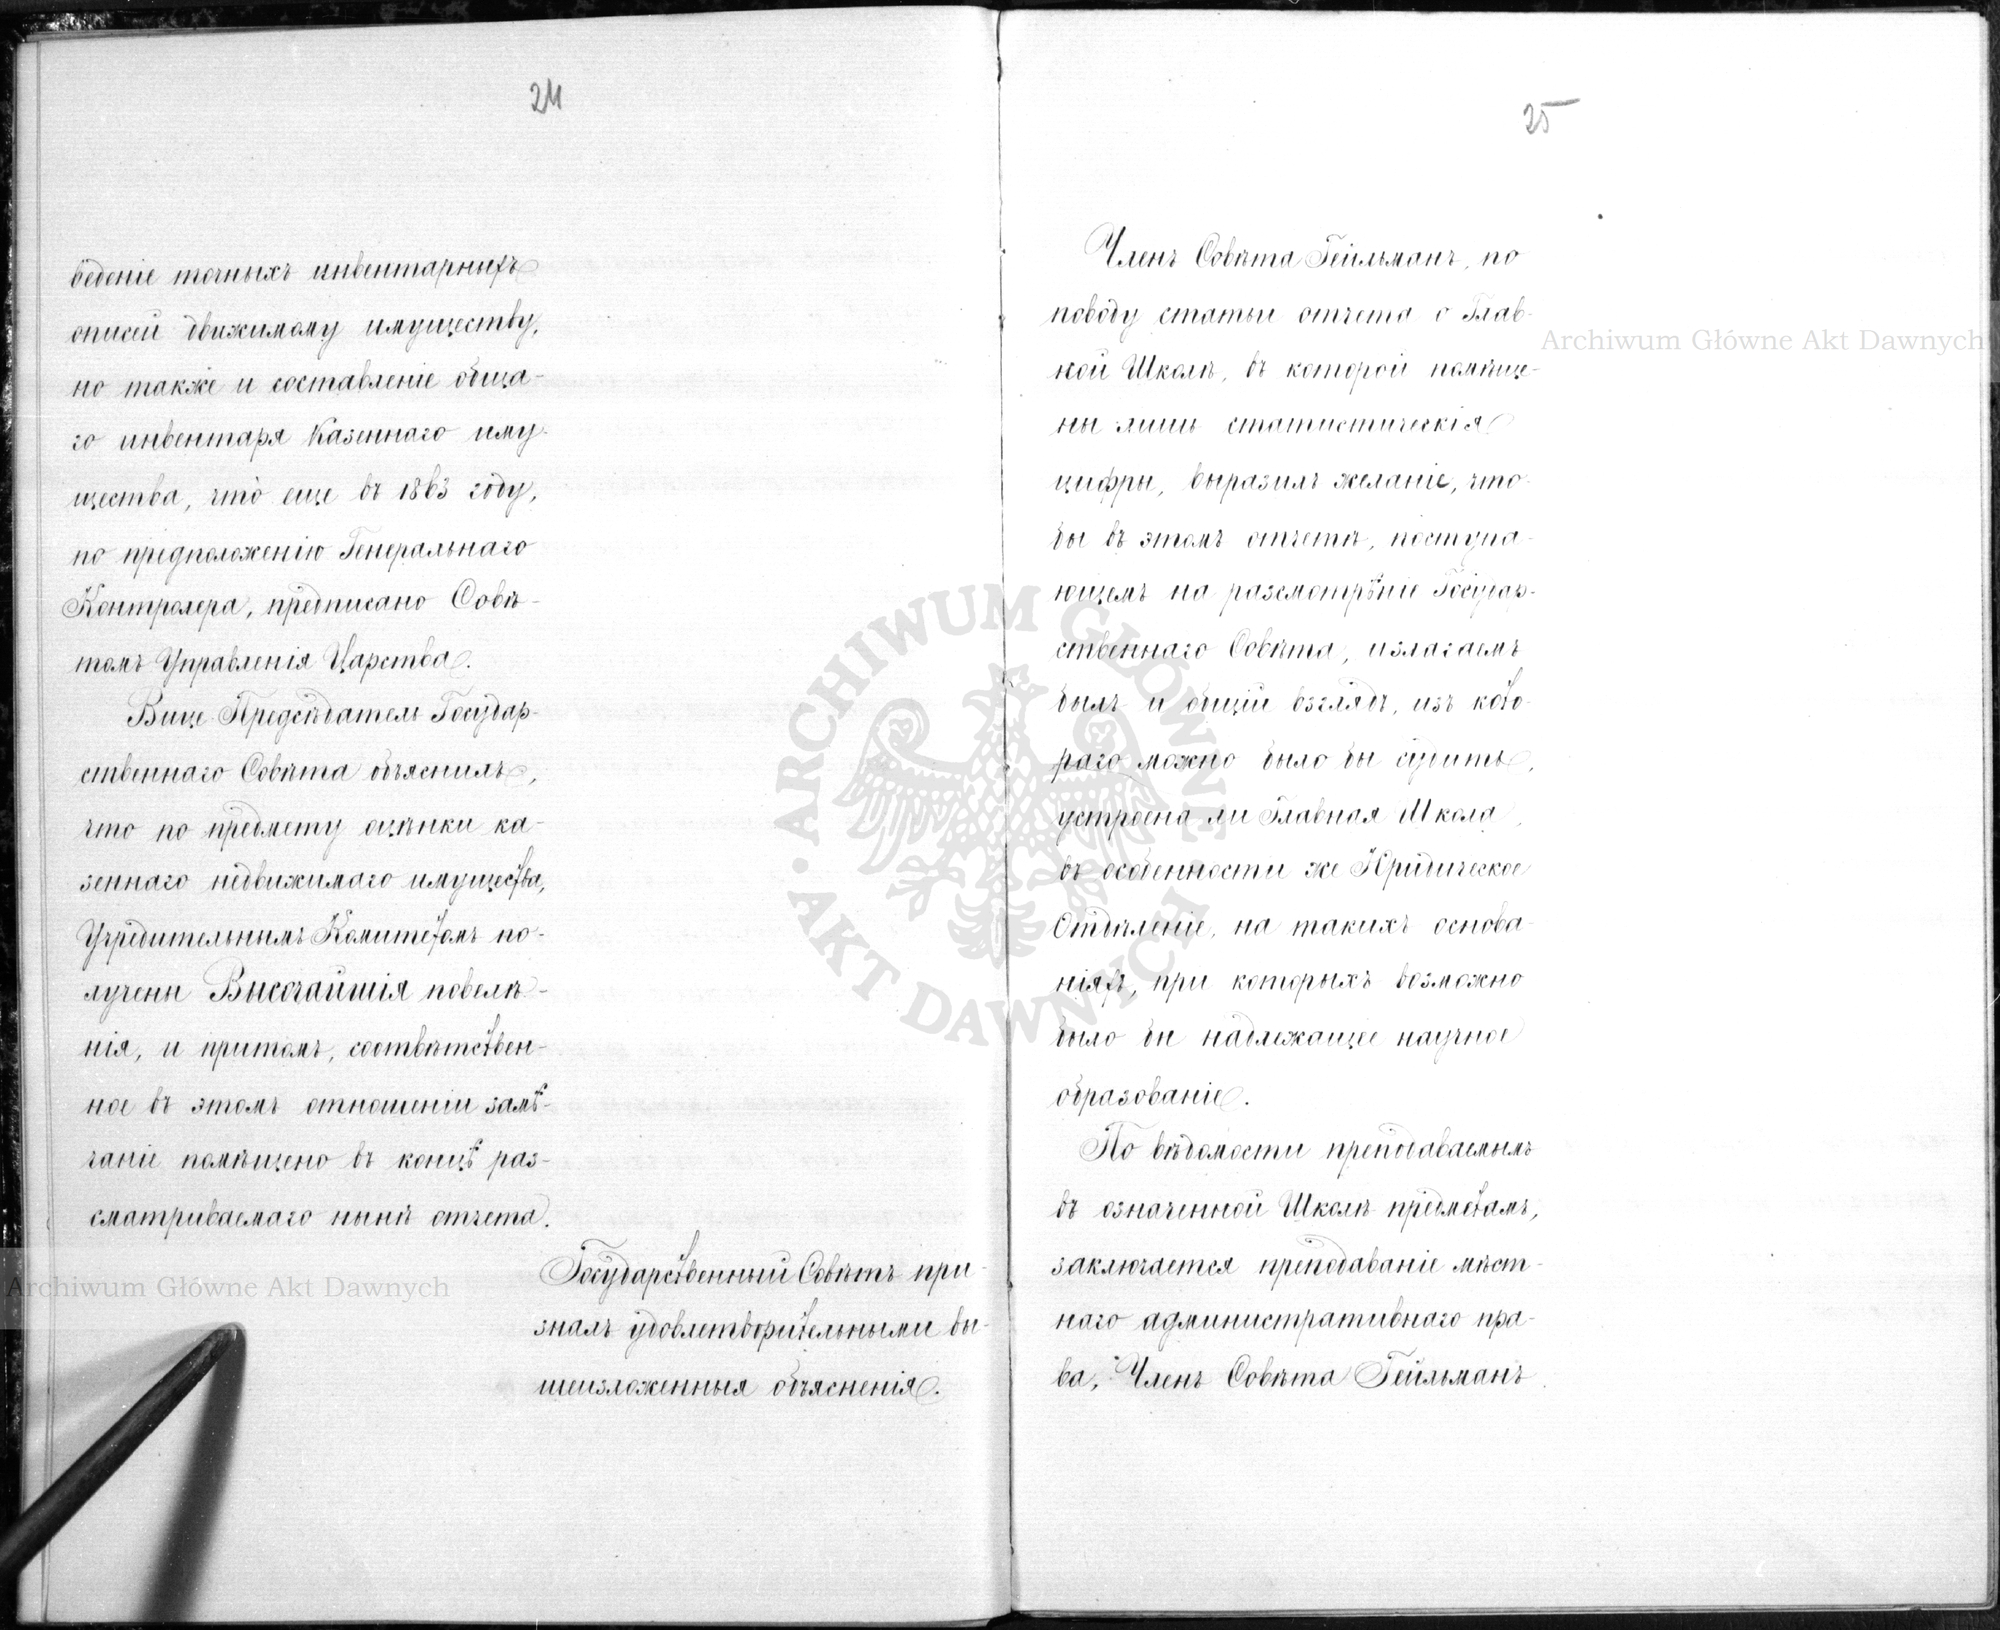 24
веденіе точныхъ инвентарныхъ
описей движимому имуществу,
но также и составленіе обща-
го инвентаря Казеннаго иму-
щества, что еще въ 1863 году,
по предположенію Генеральнаго
Контролера, предписано Совѣ-
томъ Управленія Царства.
Вице-Предсѣдатель Государ-
ственнаго Совѣта объяснилъ,
что по предмету оцѣнки ка-
зеннаго недвижимаго имущества,
Учредительнымъ Комитетомъ по-
лучены Высочайшія повелѣ-
нія, и притомъ, соотвѣтствен-
ное въ этомъ отношеніи замѣ-
чаніе помѣщено въ концѣ раз-
сматриваемаго нынѣ отчета.
Государственный Совѣтъ при-
зналъ удовлетворительными вы-
шеизложенныя объясненія.
25
Членъ Совѣта Гейльманъ, по
поводу статьи отчета о Глав-
ной Школѣ, въ которой помѣще-
ны лишь статистическія
цифры, выразилъ желаніе, что-
бы въ этомъ отчетѣ, поступа-
ющемъ на разсмотрѣніе Государ-
ственнаго Совѣта, излагаемъ
былъ и общій взглядъ, изъ кото-
раго можно было бы судить,
устроена ли Главная Школа,
въ особенности же Юридическое
Отдѣленіе, на такихъ основа-
ніяхъ, при которыхъ возможно
было бы надлежащее научное
образованіе.
По вѣдомости преподаваемымъ
въ означенной Школѣ предметамъ,
заключается преподаваніе мѣст-
наго административнаго пра-
ва, Членъ Совѣта Гейльманъ
Archiwum Główne Akt Dawnych
Archiwum Główne Akt Dawnych
ARCHIWUM GŁÓWNE AKT DAWNYCH